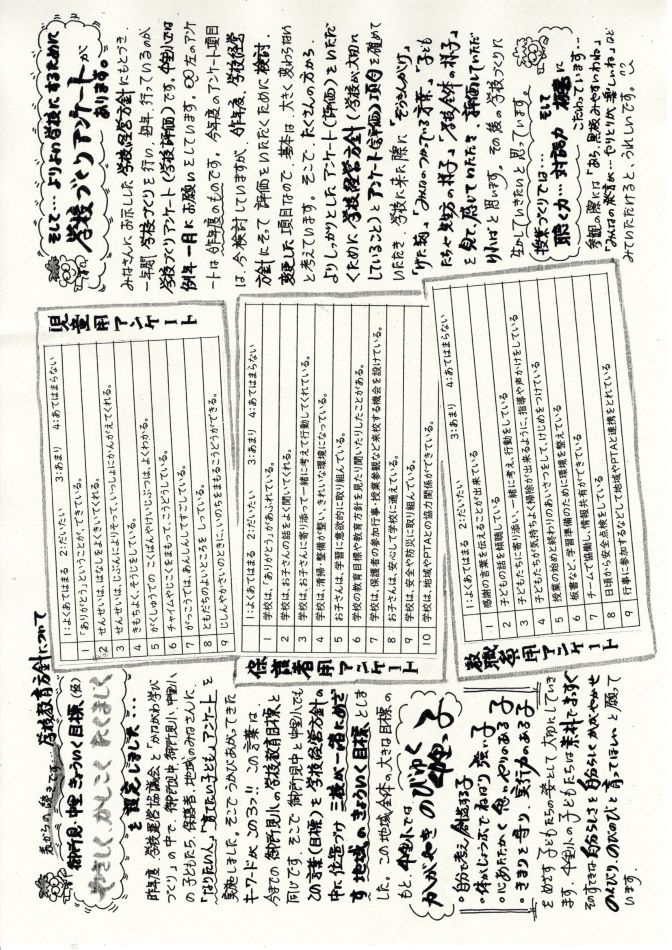 裏からの続きです… 学校教育方針について
御所見・中里 きょういく目標(仮)
やさしく かしこく たくましく
を設定しました…
昨年度 学校運営協議会と「かながわ学び
づくり」の中で、御所見中、御所見小、中里小
の子どもたち、保護者、地域のみなさんに、
「なりたい人」「育てたい子ども」アンケートを
実施しました。そこでうかびあがってきた
キーワードがこの3つ!! この言葉は、
今までの御所見小の学校教育目標と
同じです。そこで御所見中と中里小でも
この言葉(目標)を学校経営方針の
中に位置づけ 三校が一緒にめざ
す地域のきょういく目標としま
した。この地域全体の大きな目標の
もと、中里小では
かがやき のびゆく 中里っ子
・自分で考え 創造する子
・体がじょうぶで ねばり強い子
・心あたたかく 思いやりのある子
・きまりを守り 実行力のある子
をめざす子どもたちの姿として大切にしていき
ます。中里小の子どもたちは素朴ですなおです
そのすてきな自分らしさを自分らしくかがやかせ
のんびり のびのびと育ってほしいと願って
います。
児童用アンケート
1:よくあてはまる 2:だいたい 3:あまり 4:あてはまらない
1 「ありがとう」ということが、できている。
2 せんせいは、はなしをよくきいてくれる。
3 せんせいは、じぶんによりそって、いっしょにかんがえてくれる。
4 きもちよく、そうじをしている。
5 がくしゅうでの こくばんやけいじぶつは、よくわかる。
6 チャイムやじこくをまもって、こうどうしている。
7 がっこうでは、あんしんしてすごしている。
8 ともだちのよいところを しっている。
9 じしんやかさいのときに、いのちをまもるこうどうができる。
保護者用アンケート
1:よくあてはまる 2:だいたい 3:あまり 4:あてはまらない
1 学校は、「ありがとう」があふれている。
2 学校は、お子さんの話をよく聞いてくれる。
3 学校は、お子さんに寄り添って一緒に考えて行動してくれている。
4 学校は、清掃・整備が整い、きれいな環境になっている。
5 お子さんは、学習に意欲的に取り組んでいる。
6 学校の教育目標や教育方針を見たり聞いたりしたことがある。
7 学校は、保護者の参加行事・授業参観など来校する機会を設けている。
8 お子さんは、安心して学校に通えている。
9 学校は、安全や防災に取り組んでいる。
10 学校は、地域やPTAとの協力関係ができている。
教職員用アンケート
1:よくあてはまる 2:だいたい 3:あまり 4:あてはまらない
1 感謝の言葉を伝えることが出来ている
2 子どもの話を傾聴している
3 子どもたちに寄り添い、一緒に考え、行動をしている
4 子どもたちが気持ちよく掃除が出来るように、指導や声かけをしている
5 授業の始めと終わりのあいさつをして、けじめをつけている
6 板書など、学習準備のために環境を整えている
7 チームで協働し、情報共有ができている
8 日頃から安全点検をしている
9 行事に参加するなどして地域やPTAと連携をとれている
そして… よりよい学校にするために
学校づくりアンケートが
あります。
みなさんにお示しした学校経営方針にもとづき、
一年間 学校づくりを行い、毎年行っているのが
学校づくりアンケート(学校評価)です。中里小では
例年一月にお願いをしています。左のアンケ
ートは昨年度のものです。今年度のアンケート項目
は、今検討していますが、昨年度、学校経営
方針にそって評価をいただくために検討・
変更した項目なので、基本は大きく変わらない
と考えています。そこで、たくさんの方から、
よりしっかりとしたアンケート(評価)をいただ
くために学校経営方針(学校が大切に
していること)とアンケート(評価)項目を確めて
いただき 学校に来た際に「そうきんがけ」
「げた箱」「みんなのつかっている言葉」「子ども
たちや先生方の様子」「学校全体の様子」
を見て、感じていただき 評価していただ
ければと思います。その後の学校づくりに
生かしていきたいと思っています。
授業づくりでは… そして
聴く力…対話力 板書に
こだわっています…
参観の際には「あら、黒板みやすいわね」
「みんなの発言が、やりとりが楽しいわね」など
みていただけると、うれしいです。